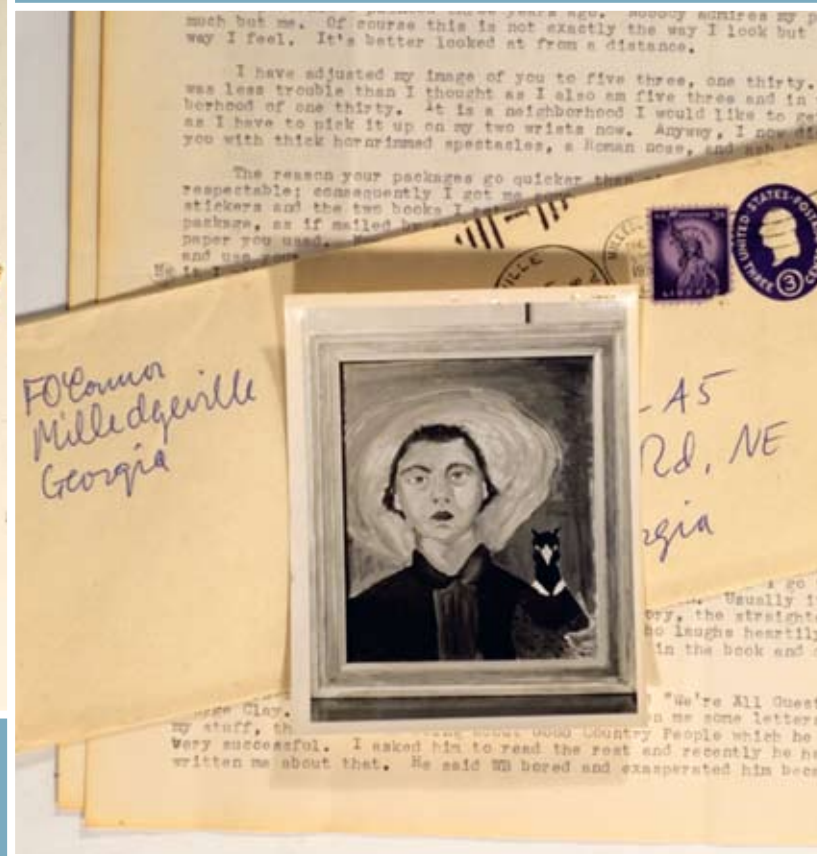 much but me. Of course this is not exactly the way I look but
way I feel. It's better looked at from a distance.
I have adjusted my image of you to five three, one thirty.
was less trouble than I thought as I also am five three and in
borhood of one thirty. It is a neighborhood I would like to
as I have to pick it up on my two wrists now. Anyway, I now
you with thick hornrimmed spectacles, a Roman nose, and ash
The reason your packages go quicker than
respectable; consequently I got me
stickers and the two books I
package, as if mailed by
paper you used.
and use your
UNITED STATES POSTAGE
THREE 3 CENTS
3¢
LIBERTY
VILLE
FO'Connor
Milledgeville
Georgia
-A5
Rd, NE
rgia
I go
Usually
ory, the
ho laughs heartily
in the book and
Clay.
"We're All
me some letters
my stuff,
about Good Country People which he
very successful. I asked him to read the rest and recently he
written me about that. He said WB bored and exasperated him